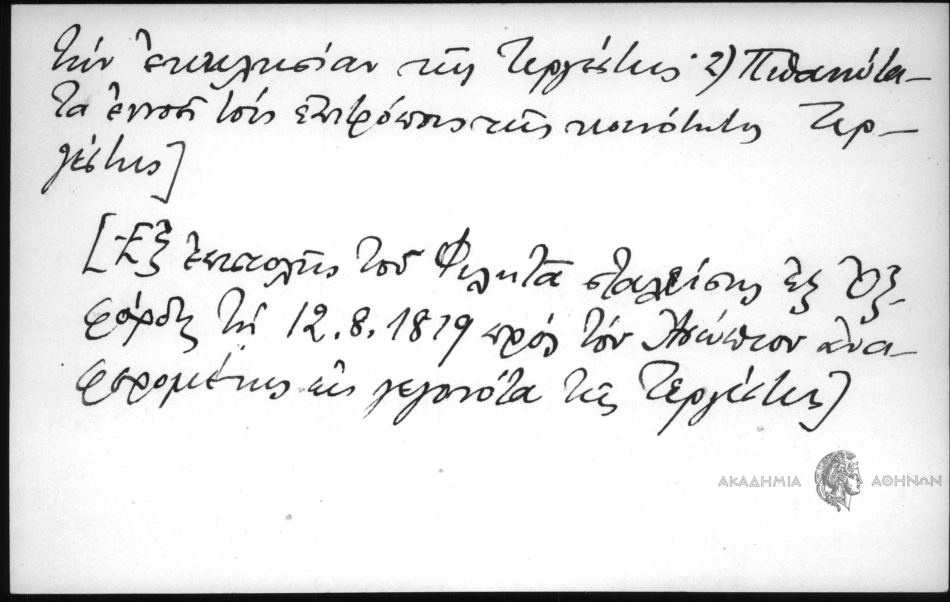 τὴν ἐκκλησίαν τῆς Τεργέστης 2) Πιθανώτα-
τα ἐννοεῖ τοὺς ἐπιτρόπους τῆς κοινότητος Τερ-
γέστης]
[Ἐξ ἐπιστολῆς τοῦ Φιλητᾶ σταλείσης ἐξ Ὀξ-
φόρδης τῇ 12.8.1819 πρὸς τὸν Ἀσώπιον ἀνα-
φερομένης εἰς γεγονότα τῆς Τεργέστης]
ΑΚΑΔΗΜΙΑ ΑΘΗΝΩΝ